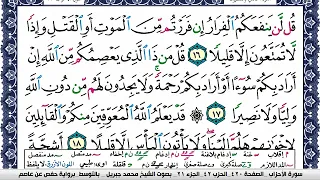 قُل لَّن يَنفَعَكُمُ ٱلْفِرَارُ إِن فَرَرْتُم مِّنَ ٱلْمَوْتِ أَوِ ٱلْقَتْلِ وَإِذًا
لَّا تُمَتَّعُونَ إِلَّا قَلِيلًا ١٦ قُلْ مَن ذَا ٱلَّذِى يَعْصِمُكُم مِّنَ ٱللَّهِ إِنْ
أَرَادَ بِكُمْ سُوٓءًا أَوْ أَرَادَ بِكُمْ رَحْمَةً وَلَا يَجِدُونَ لَهُم مِّن دُونِ ٱللَّهِ
وَلِيًّا وَلَا نَصِيرًا ١٧ قَدْ يَعْلَمُ ٱللَّهُ ٱلْمُعَوِّقِينَ مِنكُمْ وَٱلْقَآئِلِينَ
لِإِخْوَٰنِهِمْ هَلُمَّ إِلَيْنَا وَلَا يَأْتُونَ ٱلْبَأْسَ إِلَّا قَلِيلًا ١٨ أَشِحَّةً
سورة الأحزاب الصفحة ٤٢٠ الحزب ٤٢ الجزء ٢١ بصوت الشيخ محمد جبريل بالتوسط برواية حفص عن عاصم